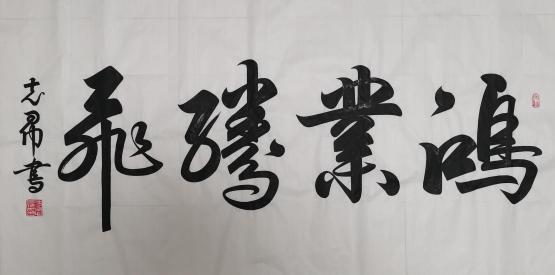 鴻業騰飛
志昂